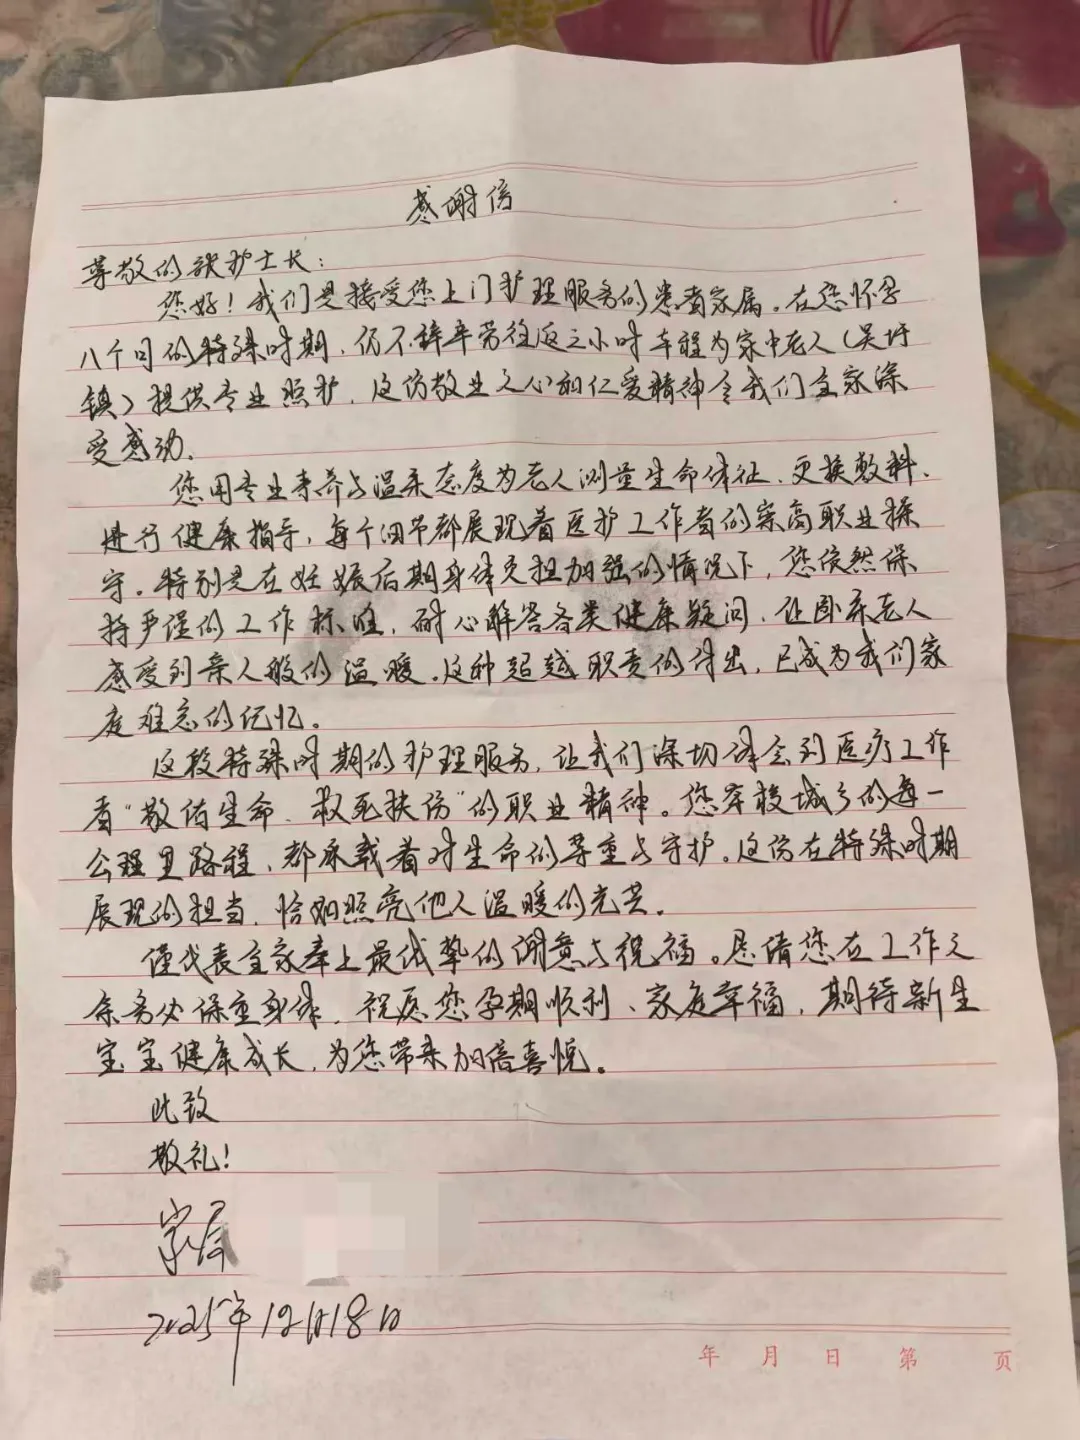 感谢信
尊敬的耿护士长：
您好！我们是接受您上门护理服务的患者家属。在您怀孕
八个月的特殊时期，仍不辞辛劳往返三小时车程为家中老人（吴圩
镇）提供专业照护，这份敬业之心和仁爱精神令我们全家深
受感动。
您用专业素养与温柔态度为老人测量生命体征、更换敷料、
进行健康指导，每个细节都展现着医护工作者的崇高职业操
守。特别是在妊娠后期身体负担加强的情况下，您依然保
持严谨的工作标准，耐心解答各类健康疑问，让卧床老人
感受到亲人般的温暖。这种超越职责的付出，已成为我们家
庭难忘的记忆。
这段特殊时期的护理服务，让我们深切体会到医疗工作
者“敬佑生命、救死扶伤”的职业精神。您穿梭城乡的每一
公理里路程，都承载着对生命的尊重与守护。这份在特殊时期
展现的担当，恰如照亮他人温暖的光芒。
僅代表全家奉上最诚挚的谢意与祝福。恳请您在工作之
余务必保重身体，祝愿您孕期顺利、家庭幸福，期待新生
宝宝健康成长，为您带来加倍喜悦。
此致
敬礼！
家属
2025年12月18日
年 月 日 第 页